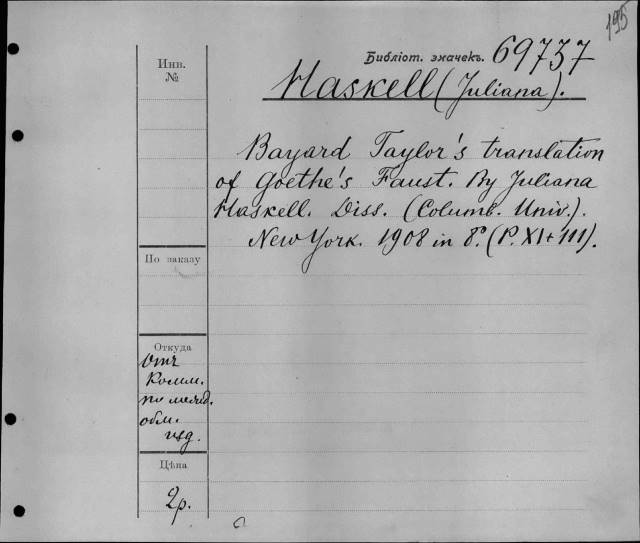 195
Библіот. значекъ. 69737
Инв.
№
Haskell (Juliana).
Bayard Taylor's translation
of Goethe's Faust. By Juliana
Haskell. Diss. (Columb. Univ.).
New York. 1908 in 8°. (P. XI+111).
По заказу
Откуда
Отъ
Комм.
по межд.
обм.
изд.
Цѣна
2р.